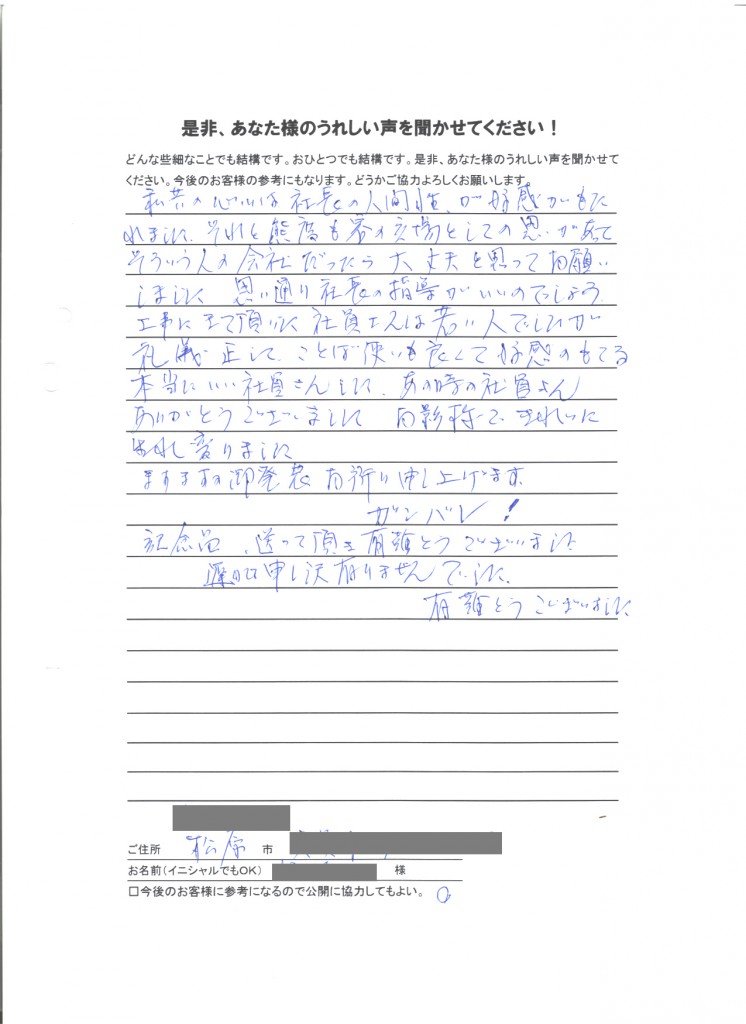 是非、あなた様のうれしい声を聞かせてください！
どんな些細なことでも結構です。おひとつでも結構です。是非、あなた様のうれしい声を聞かせて
ください。今後のお客様の参考にもなります。どうかご協力よろしくお願いします。
私共の 社長の人間性が好感がもた
れました それと態度も客の立場としての思いがあって
そういう人の会社だったら大丈夫と思ってお願い
しました 思い通り社長の指導がいいのでしょう
工事に来て頂いた社員さんは若い人でしたが
礼儀正しく、ことば使いも良くて好感のもてる
本当にいい社員さんでした、あの時の社員さん
ありがとうございました お影様で きれいに
生れ変りました
ますますの御発展お祈り申し上げます
ガンバレ！
記念品、送って頂き有難とうございました
遅れて申し訳有りませんでした、
有難とうございました
ご住所 松原 市
お名前（イニシャルでもOK） 様
□今後のお客様に参考になるので公開に協力してもよい。 ○